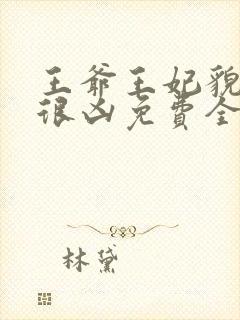 王爷王妃貌
很凶免费全
林黛